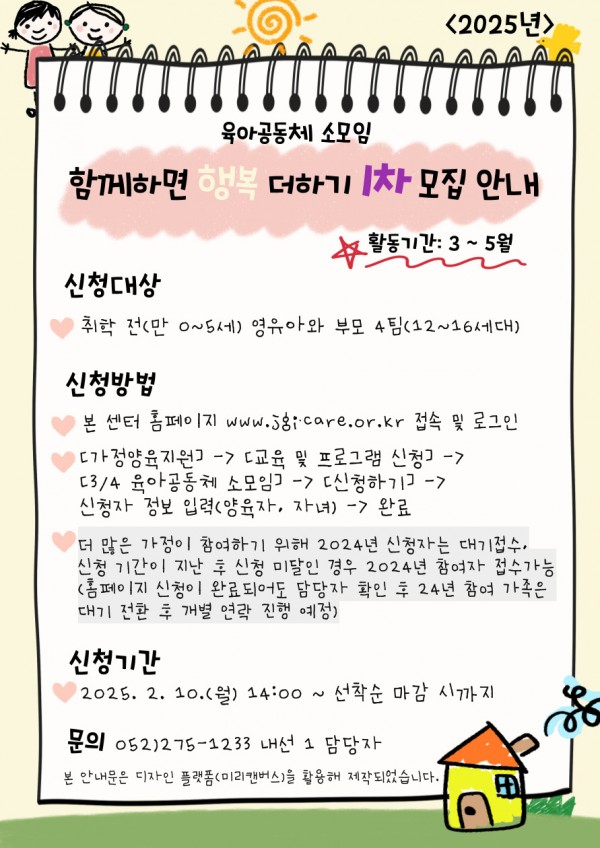 <2025년>
육아공동체 소모임
함께하면 행복 더하기 1차 모집 안내
활동기간: 3 ~ 5월
신청대상
취학 전(만 0~5세) 영유아와 부모 4팀(12~16세대)
신청방법
본 센터 홈페이지 www.jgi.care.or.kr 접속 및 로그인
[가정양육지원] -> [교육 및 프로그램 신청] ->
[3/4 육아공동체 소모임] -> [신청하기] ->
신청자 정보 입력(양육자, 자녀) -> 완료
더 많은 가정이 참여하기 위해 2024년 신청자는 대기접수,
신청 기간이 지난 후 신청 미달인 경우 2024년 참여자 접수가능
(홈페이지 신청이 완료되어도 담당자 확인 후 24년 참여 가족은
대기 전환 후 개별 연락 진행 예정)
신청기간
2025. 2. 10.(월) 14:00 ~ 선착순 마감 시까지
문의 052)275-1233 내선 1 담당자
본 안내문은 디자인 플랫폼(미리캔버스)을 활용해 제작되었습니다.